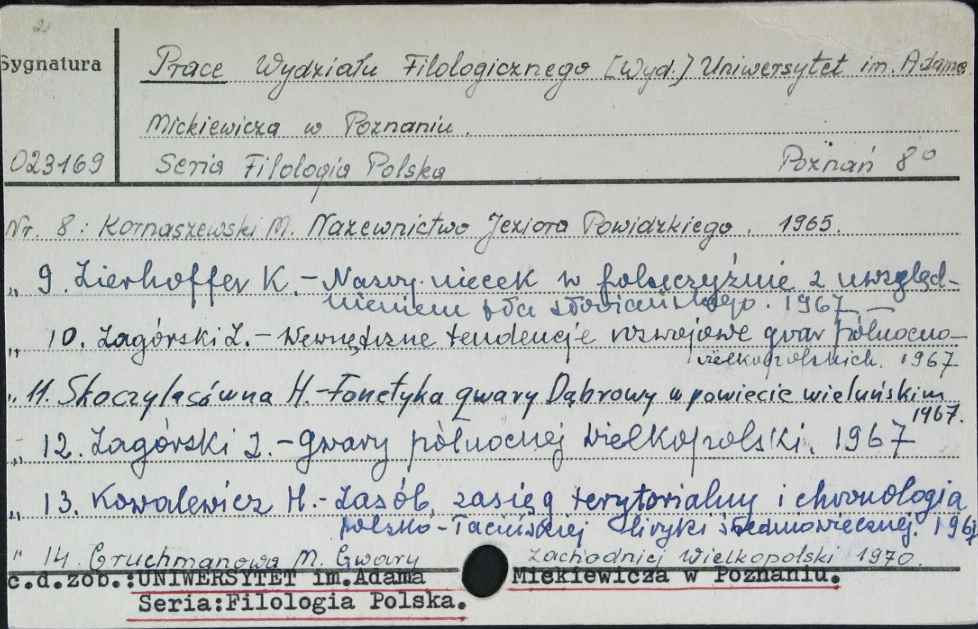 Sygnatura
Prace Wydziału Filologicznego [Wyd.] Uniwersytet im. Adama
Mickiewicza w Poznaniu.
023169 Seria Filologia Polska Poznań 8°
Nr. 8: Kornaszewski M. Nazewnictwo Jeziora Powidzkiego. 1965.
„ 9. Zierhoffer K. – Nazwy niecek w polszczyźnie z uwzględ-
nieniem tła słowiańskiego. 1967
„ 10. Zagórski Z. – Wewnętrzne tendencje rozwojowe gwar północno-
wielkopolskich. 1967
„ 11. Skoczylasówna H. – Fonetyka gwary Dąbrowy w powiecie wieluńskim
1967.
„ 12. Zagórski Z. – Gwary północnej Wielkopolski. 1967
„ 13. Kowalewicz H. – Zasób, zasięg terytorialny i chronologia
polsko-łacińskiej liryki średniowiecznej. 1967
" 14. Gruchmanowa M. Gwary zachodniej Wielkopolski 1970.
c.d.zob.: UNIWERSYTET im.Adama Mickiewicza w Poznaniu.
Seria:Filologia Polska.